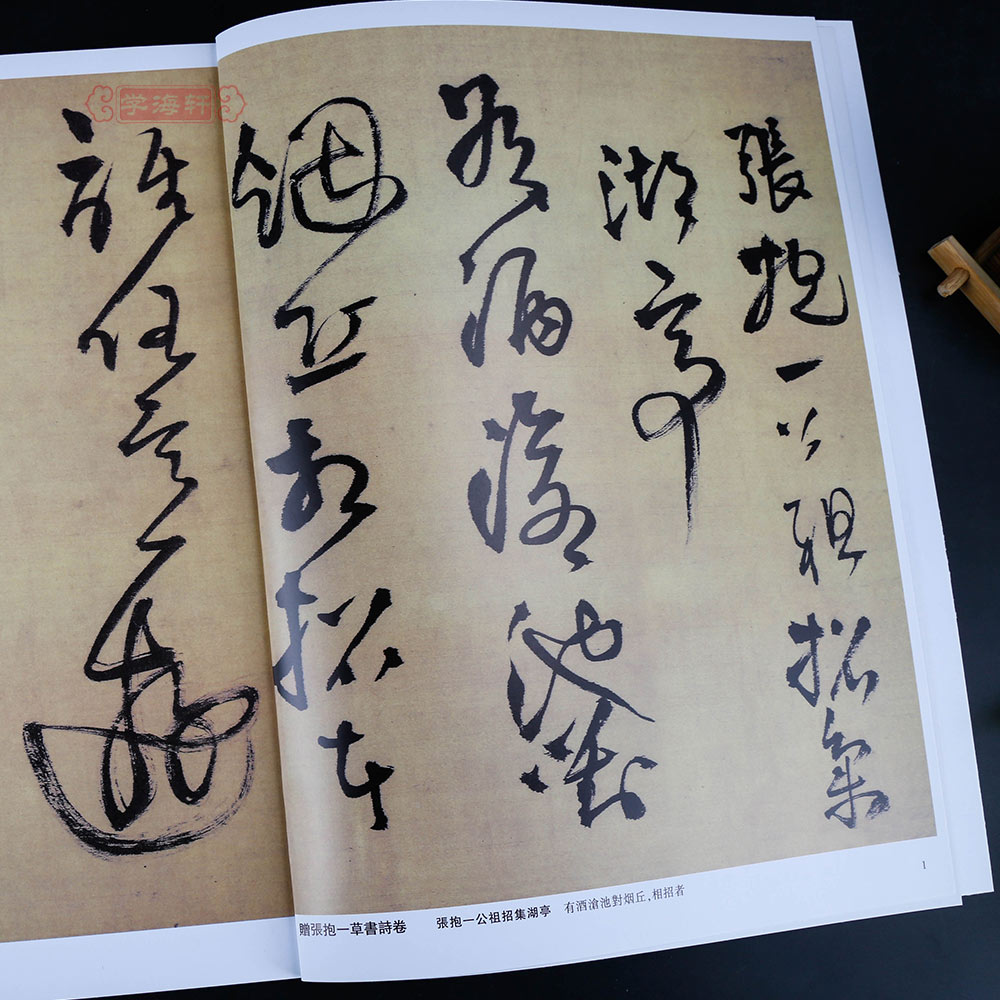 張抱一公祖招集
湖亭
有酒滄池對
烟丘相招者
誰
学海轩
贈張抱一草書詩卷 張抱一公祖招集湖亭 有酒滄池對烟丘,相招者
1